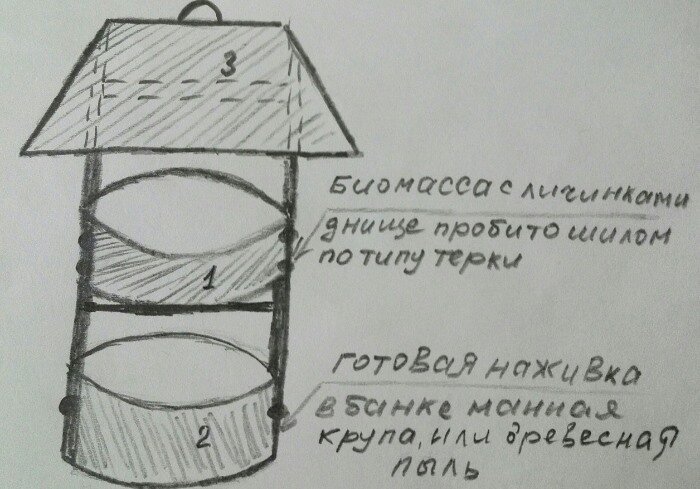 3
Биомасса с личинками
днище пробито шилом
по типу терки
1
готовая наживка
в банке манная
крупа, или древесная
пыль
2